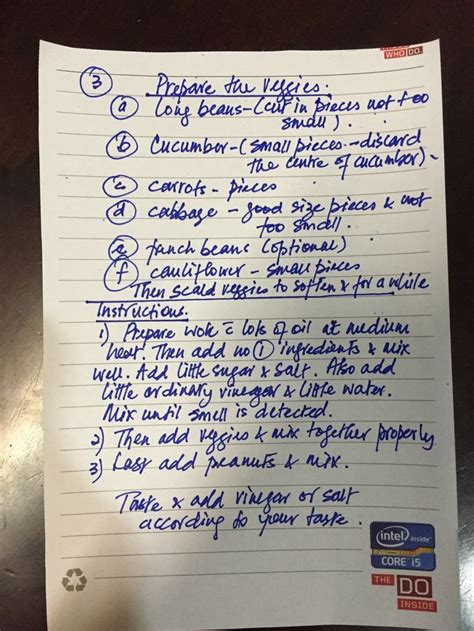 WHO DO.
③ Prepare the Veggies.
ⓐ Long beans - (cut in pieces not too
small).
ⓑ Cucumber - (small pieces - discard
the centre of cucumber)
ⓒ carrots - pieces
ⓓ cabbage - good size pieces & not
too small.
ⓔ french beans (optional)
ⓕ cauliflower - small pieces
Then scald veggies to soften & for a while
Instructions.
1) Prepare wok c̄ lots of oil at medium
heat. Then add no ① ingredients & mix
well. Add little sugar & salt. Also add
little ordinary vinegar & little water.
Mix until smell is detected.
2) Then add veggies & mix together properly
3) Last add peanuts & mix.
Taste & add vinegar or salt
according to your taste.
intel inside™
CORE i5
THE DO
INSIDE